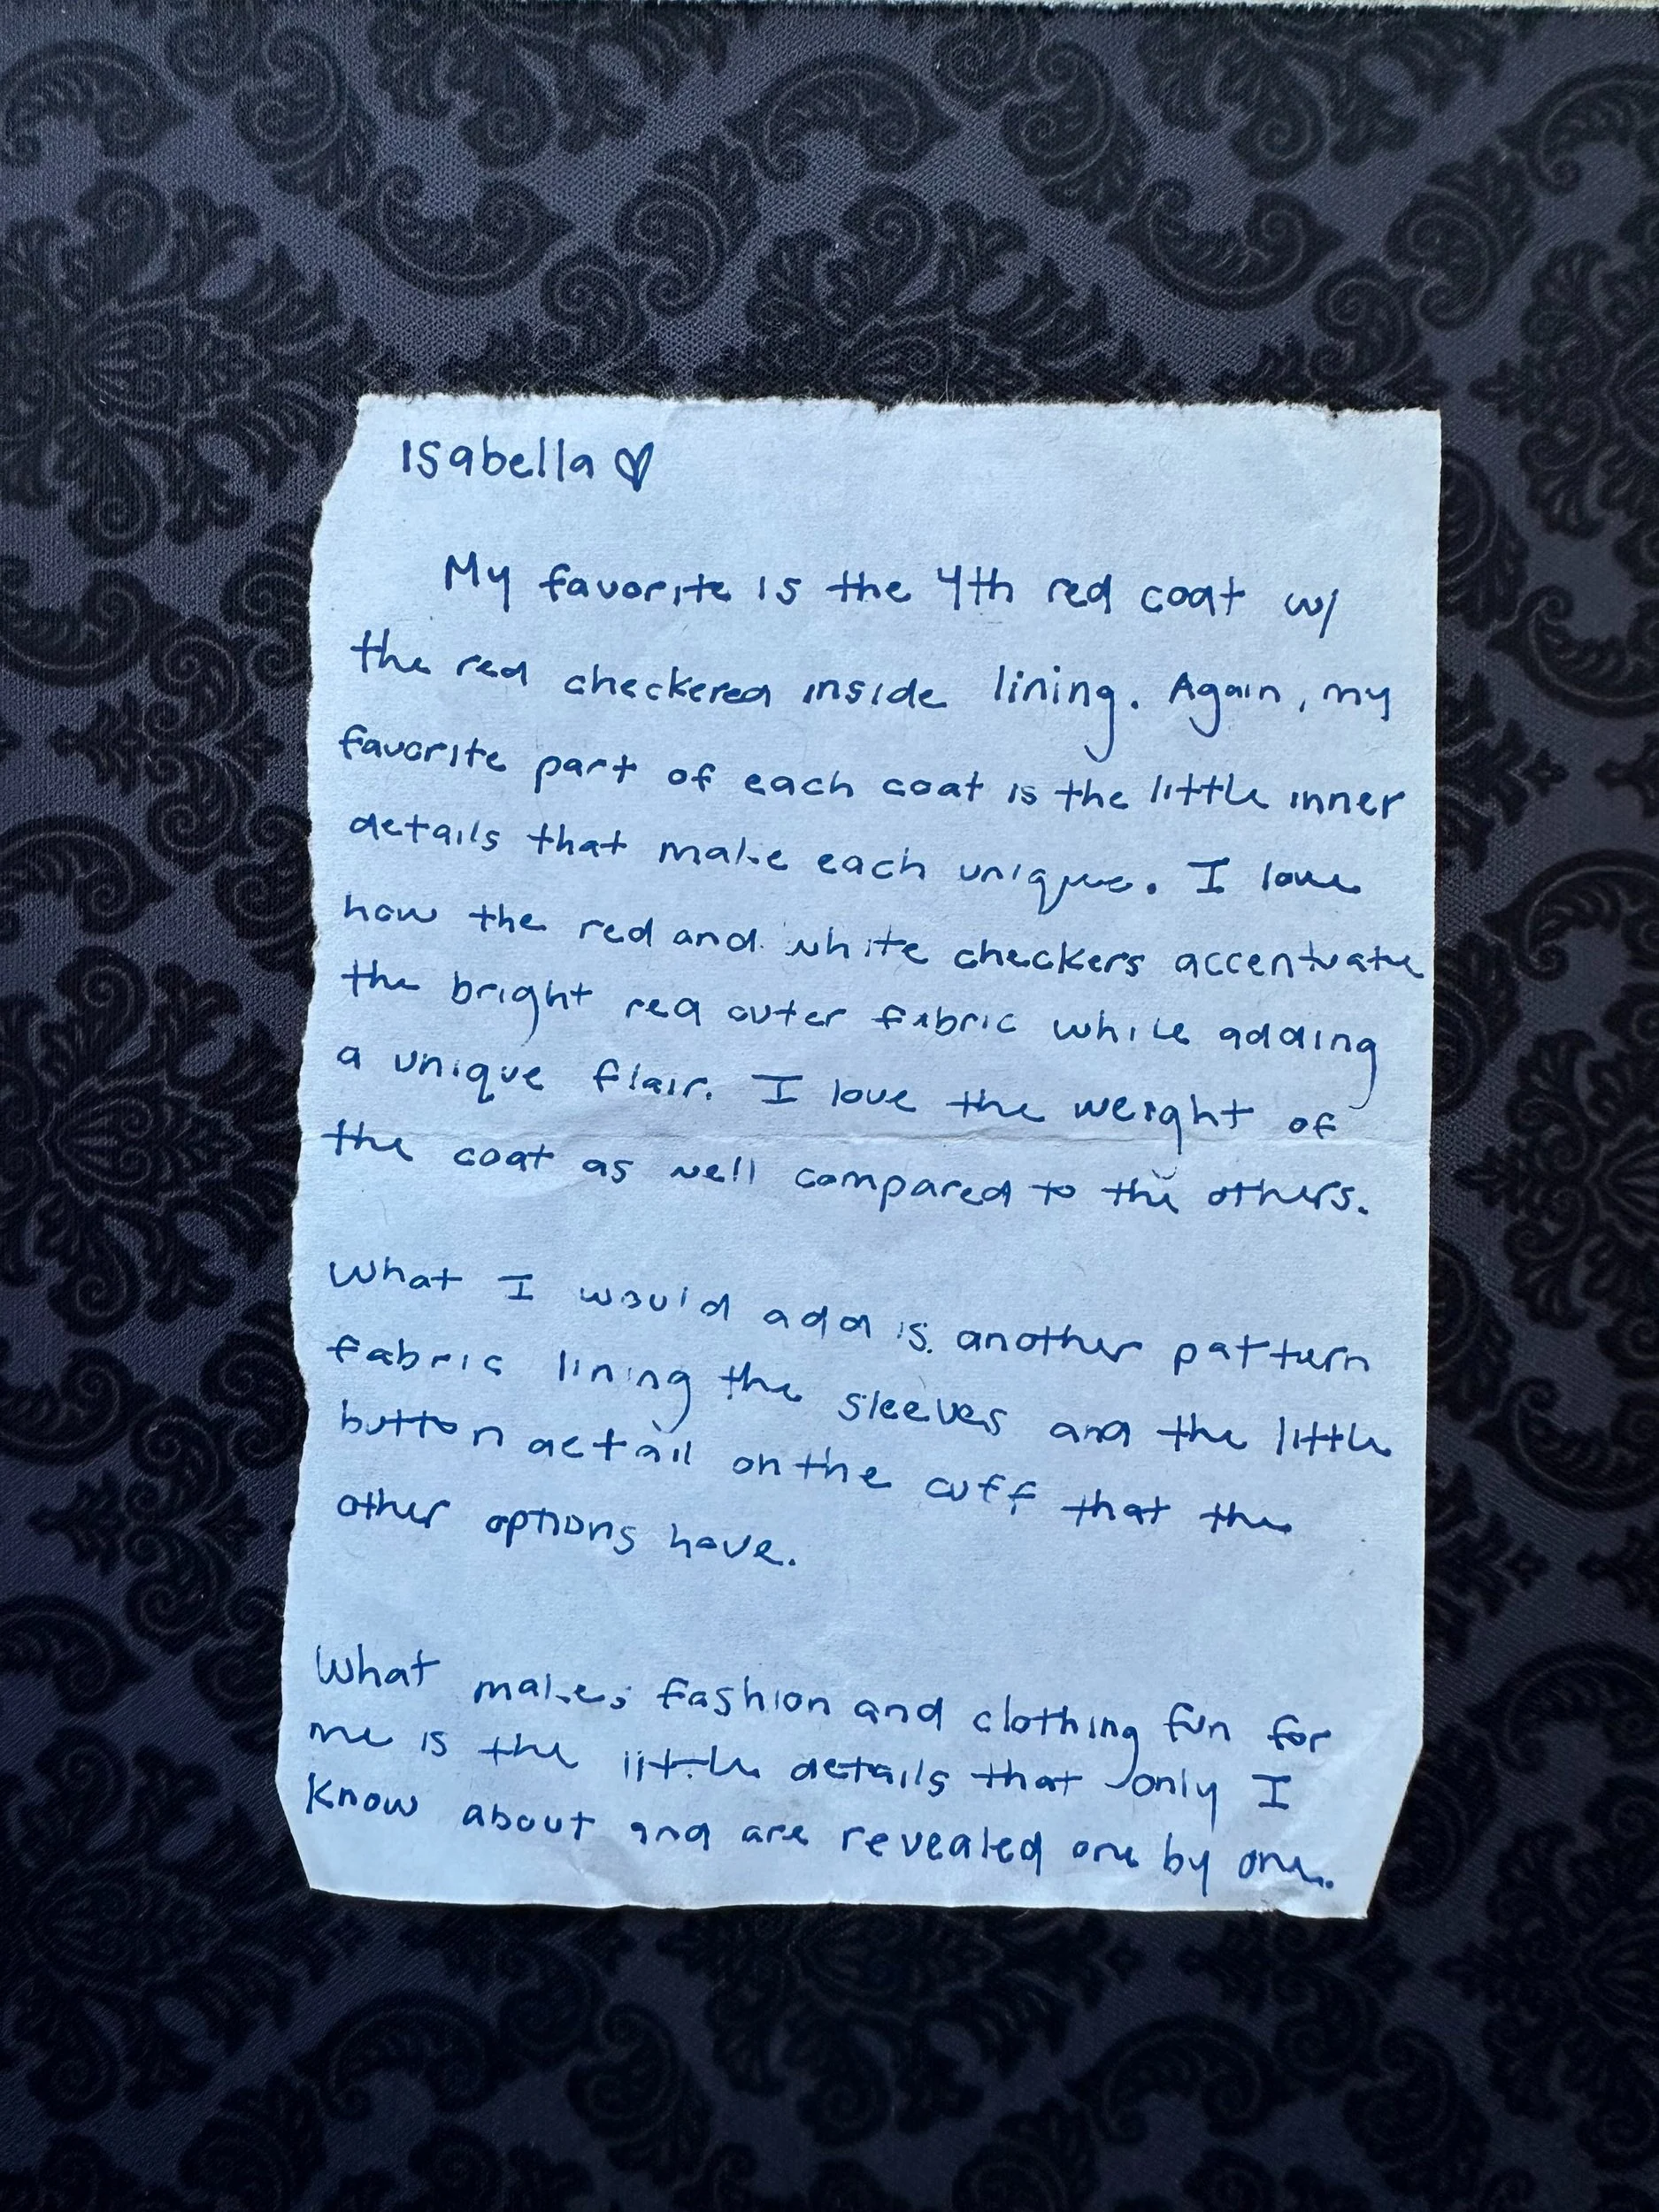 Isabella ♡
My favorite is the 4th red coat w/
the red checkered inside lining. Again, my
favorite part of each coat is the little inner
details that make each unique. I love
how the red and white checkers accentuate
the bright red outer fabric while adding
a unique flair. I love the weight of
the coat as well compared to the others.
What I would add is another pattern
fabric lining the sleeves and the little
button detail on the cuff that the
other options have.
What makes fashion and clothing fun for
me is the little details that only I
know about and are revealed one by one.